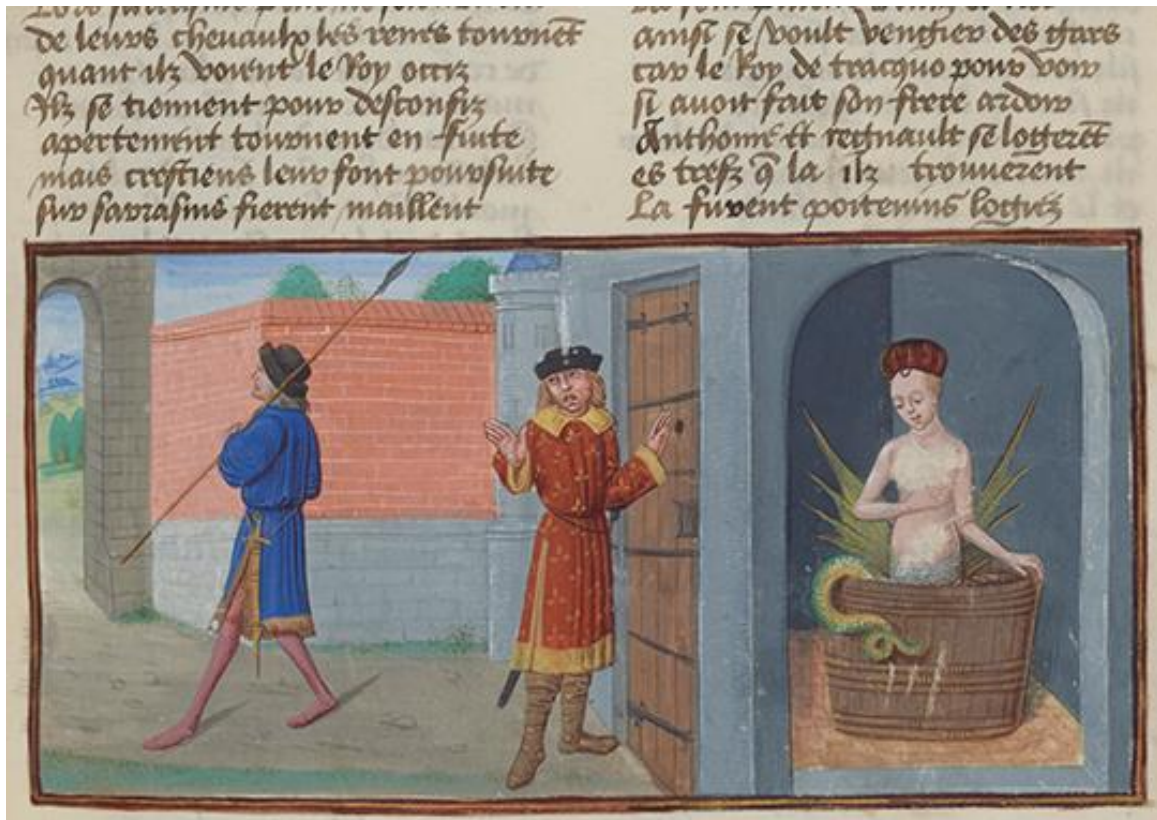 de leurs chevaulx les renes tournẽt
quant ilz voient le Roy occiz
Ilz se tiennent pour desconfiz
apertement tournent en fuite
mais crestiens leur font poursuite
sur sarrasins fierent maillent
ainsi se voult vengier des gars
car le Roy de tracquo pour voir
si avoit fait son frere ardoir
Anthoine et regnault se logerẽt
es trefz q̃ la ilz trouverent
La furent poitevins logiez